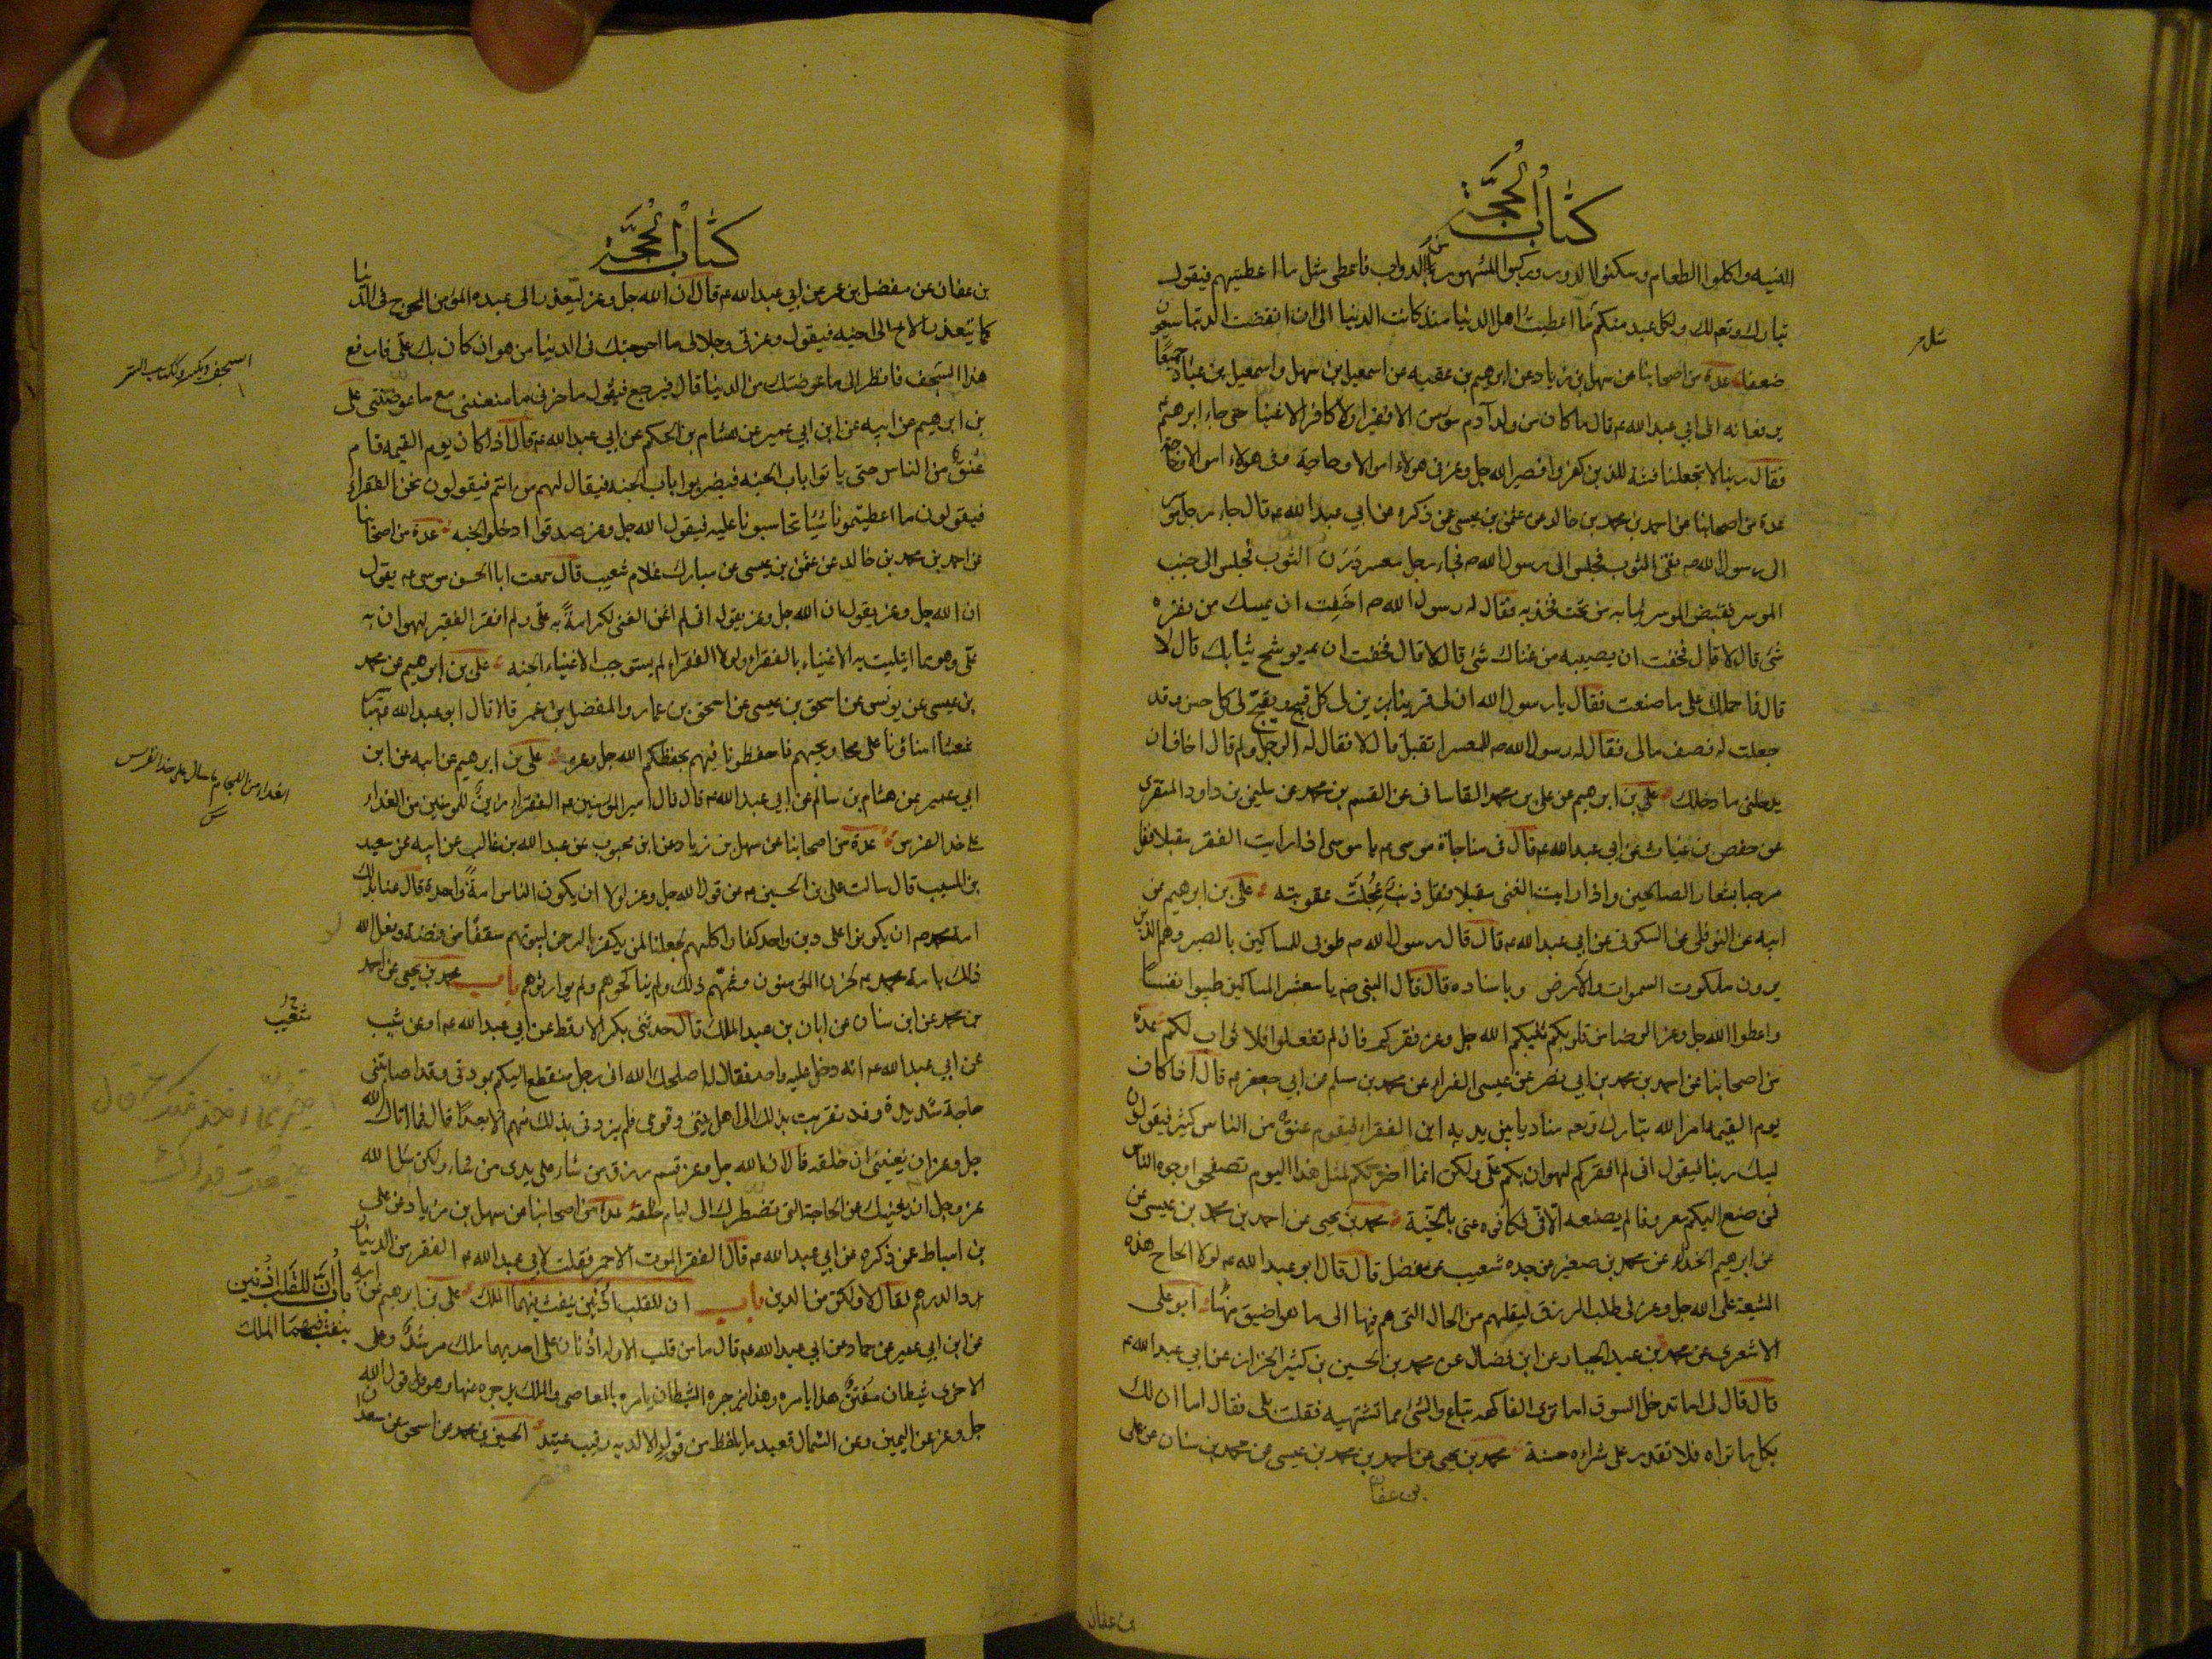 كتاب الحجة
اللينه واكلوا الطعام وسكنوا الدور وركبوا المشهور من الدواب فاعطى مثل ما اعطيتهم فيقول
تبارك وتعلك ولكل عبد منكم مثل ما اعطيت اهل الدنيا منذ كانت الدنيا الى ان انقضت الدنيا سبعون
ضعفا عدة من اصحابنا عن سهل بن زياد عن ابرهيم بن عقبه عن اسمعيل بن سهل واسمعيل بن عباد جميعا
يرفعانه الى ابي عبد الله ع قال ما كان من ولد آدم مؤمن الا فقيرا ولا كافر الا غنيا حتى جاء ابرهيم ع
فقال ربنا لا تجعلنا فتنة للذين كفروا فصير الله جل وعز في هولاء اموالا وحاجة وفي هولاء اموالا وحاجة
عدة من اصحابنا عن احمد بن محمد بن خالد عن عثمن بن عيسى عمن ذكره عن ابي عبد الله ع قال جاء رجل موسر
الى رسول الله ص نقي الثوب فجلس الى رسول الله ص فجاء رجل معسر درن الثوب فجلس الى جنب
الموسر فقبض الموسر ثيابه من تحت فخذيه فقال له رسول الله ص اخفت ان يمسك من فقره
شئ قال لا قال فخفت ان يصيبه من غناك شئ قال لا قال فخفت ان يوسخ ثيابك قال لا
قال فما حملك على ما صنعت فقال يا رسول الله ان لي قرينا يزين لي كل قبيح ويقبح لي كل حسن وقد
جعلت له نصف مالي فقال له رسول الله ص للمعسر اتقبل قال لا فقال له الرجل ولم قال اخاف ان
يدخلني ما دخلك علي بن ابرهيم عن علي بن محمد القاساني عن القسم بن محمد عن سليمن بن داود المنقري
عن حفص بن غياث عن ابي عبد الله ع قال في مناجاة موسى ع يا موسى اذا رايت الفقر مقبلا فقل
مرحبا بشعار الصالحين واذا رايت الغنى مقبلا فقل ذنب عجلت عقوبته علي بن ابرهيم عن
ابيه عن النوفلي عن السكوني عن ابي عبد الله ع قال قال رسول الله ص طوبى للمساكين بالصبر وهم الذين
يرون ملكوت السموات والارض وباسناده قال قال النبي ص يا معشر المساكين طيبوا نفسا
واعطوا الله جل وعز الرضا من قلوبكم يثيبكم الله جل وعز على فقركم فان لم تفعلوا فلا ثواب لكم عدة
من اصحابنا عن احمد بن محمد بن ابي نصر عن عيسى الفراء عن محمد بن مسلم عن ابي جعفر ع قال اذا كان
يوم القيمه امر الله تبارك وتع مناديا ينادي بين يديه اين الفقراء فيقوم عنق من الناس كثير فيقولون
لبيك ربنا فيقول اني لم افقركم لهوان بكم علي ولكن انما اخترتكم لمثل هذا اليوم تصفحوا وجوه الناس
فمن صنع اليكم معروفا لم يصنعه الا في فكافوه عني بالجنة محمد بن يحيى عن احمد بن محمد بن عيسى عن
عن ابرهيم الحذاء عن محمد بن صغير عن جده شعيب عن مفضل قال قال ابو عبد الله ع لولا الحاح هذه
الشيعة على الله جل وعز في طلب الرزق لنقلهم من الحال التي هم فيها الى ما هو اضيق منها ابو علي
الاشعري عن محمد بن عبد الجبار عن ابن فضال عن محمد بن الحسين بن كثير الخزاز عن ابي عبد الله ع
قال قال لي اما تدخل السوق اما ترى الفاكهة تباع والشئ مما تشتهيه فقلت بلى فقال اما ان لك
بكل ما تراه فلا تقدر على شراءه حسنة محمد بن يحيى عن احمد بن محمد بن عيسى عن محمد بن سنان عن علي
بن عفان
كتاب الحجة
بن عفان عن مفضل بن عمر عن ابي عبد الله ع قال ان الله جل وعز ليعتذر الى عبده المؤمن المحوج في الدنيا
كما يتعذر الاخ الى اخيه فيقول وعزتي وجلالي ما احوجتك في الدنيا من هوان كان بك علي فارفع
هذا السجف فانظر الى ما عوضتك من الدنيا قال فيرجع فيقول ما ضرني ما منعتني مع ما عوضتني علي
بن ابرهيم عن ابيه عن ابن ابي عمير عن هشام بن الحكم عن ابي عبد الله ع قال اذا كان يوم القيمه قام
عنق من الناس حتى ياتوا باب الجنه فيضربوا باب الجنه فيقال لهم من انتم فيقولون نحن الفقراء
فيقولون ما اعطيتمونا شيئا تحاسبونا عليه فيقول الله جل وعز صدقوا ادخلوا الجنه عدة من اصحابنا
عن احمد بن محمد بن خالد عن عثمن بن عيسى عن مبارك غلام شعيب قال سمعت ابا الحسن موسى ع يقول
ان الله جل وعز يقول ان الله جل وعز يقول اني لم اغن الغني لكرامة به علي ولم افقر الفقير لهوان به
علي وهو مما ابتليت به الاغنياء بالفقراء ولولا الفقراء لم يستوجب الاغنياء الجنه علي بن ابرهيم عن محمد
بن عيسى عن يونس عن اسحق بن عيسى عن اسحق بن عمار والمفضل بن عمر قالا قال ابو عبد الله ع مياسير
شيعتنا امناؤنا على محاويجهم فاحفظونا فيهم يحفظكم الله جل وعز علي بن ابرهيم عن ابيه عن ابن
ابي عمير عن هشام بن سالم عن ابي عبد الله ع قال قال امير المؤمنين ع الفقر ازين للمومنين من العذار
على خد الفرس عدة من اصحابنا عن سهل بن زياد عن ابن محبوب عن عبد الله بن غالب عن ابيه عن سعيد
بن المسيب قال سالت علي بن الحسين ع عن قول الله جل وعز لولا ان يكون الناس امة واحدة قال عنا بذلك
امة محمد ص ان يكونوا على دين واحد كفارا كلهم لجعلنا لمن يكفر بالرحمن لبيوتهم سقفا من فضة ولو فعل الله
ذلك بامة محمد ص لحزن المؤمنون وغمهم ذلك ولم يناكحوهم ولم يوارثوهم باب محمد بن يحيى عن احمد
بن محمد عن ابن سنان عن ابان بن عبد الملك قال حدثني بكر الارقط عن ابي عبد الله ع او عن شعيب
عن ابي عبد الله ع انه دخل عليه واحد فقال له اصلحك الله اني رجل منقطع اليكم بمودتي وقد اصابتني
حاجة شديدة وقد تقربت بذلك الى اهل بيتي وقومي فلم يزدني بذلك منهم الا بعدا قال فما اتاك الله
جل وعز ان يغنيني عن خلقه قال ان الله جل وعز قسم رزق من شاء على يدي من شاء ولكن سل الله
عز وجل ان يغنيك عن الحاجة التي تضطرك الى لئام خلقه عدة من اصحابنا عن سهل بن زياد عن علي
بن اسباط عمن ذكره عن ابي عبد الله ع قال الفقر الموت الاحمر فقلت لابي عبد الله ع الفقر من الدينار
والدرهم فقال لا ولكن من الدين باب ان للقلب اذنين ينفث فيهما الملك علي بن ابرهيم عن ابيه
عن ابن ابي عمير عن حماد عن ابي عبد الله ع قال ما من قلب الا وله اذنان على احديهما ملك مرشد وعلى
الاخرى شيطان مفتن هذا يامره وهذا يزجره الشيطان يامره بالمعاصي والملك يزجره عنها وهو قول الله
جل وعز عن اليمين وعن الشمال قعيد ما يلفظ من قول الا لديه رقيب عتيد الحسين بن محمد عن اسحق عن سعدان
السجف ويكسر وككتاب الستر
العذار من اللجام ما سال على خد الفرس
شعيب
باب ان للقلب اذنين
ينفث فيهما الملك
بن عفان